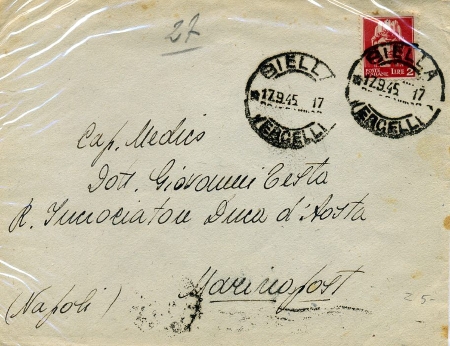 27
POSTE ITALIANE LIRE 2
BIELLA
17.9.45 17
VERCELLI
BIELLA
17.9.45 17
VERCELLI
Cap. Medico
Dott. Giovanni Testa
R. Incrociatore Duca d'Aosta
Marinapost
(Napoli)
25-